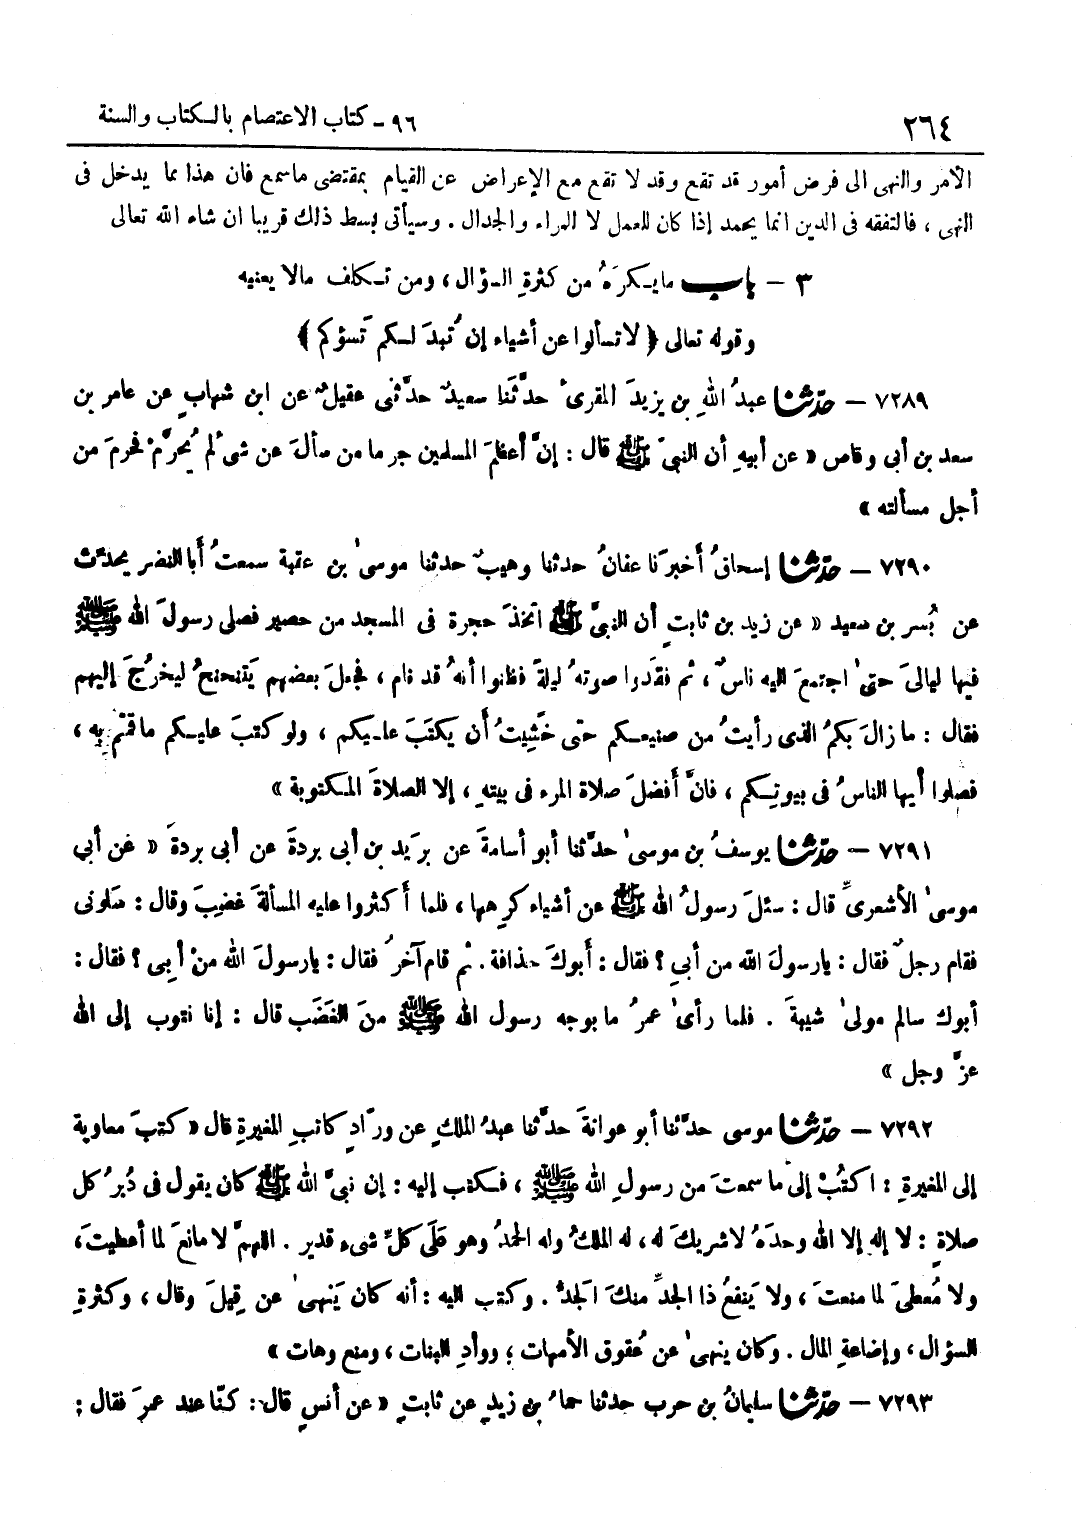 ٢٦٤ ٩٦ - كتاب الاعتصام بالكتاب والسنة
الأمر والنهى الى فرض أمور قد تقع وقد لا تقع مع الإعراض عن القيام بمقتضى ماسمع فان هذا مما يدخل فى
النهى ، فالتفقه فى الدين انما يحمد إذا كان للعمل لا للمراء والجدال . وسيأتى بسط ذلك قريبا ان شاء الله تعالى
٣ - باب مايكرَهُ من كثرةِ السؤال ، ومن تكلف مالا يعنيه
وقوله تعالى ﴿ لاتسألوا عن أشياء إن تُبدَ لكم تَسؤكم ﴾
٧٢٨٩ - حدّثنا عبدُ اللهِ بن يزيدَ المقرىُ حدَّثَنا سعيدٌ حدَّثنى عقيلٌ عن ابن شهابٍ عن عامر بن
سعد بن أبى وقاص « عن أبيهِ أن النبىَّ ﷺ قال : إنَّ أعظمَ المسلمين جرما من سألَ عن شىء لم يُحرَّمْ فحرمَ من
أجل مسألته »
٧٢٩٠ - حدّثنا إسحاقُ أخبرَنا عفانُ حدثنا وهيبٌ حدثنا موسىٰ بن عقبة سمعتُ أبا النضر يحدّث
عن بُسر بن سعيد « عن زيد بن ثابتٍ أن النبىَّ ﷺ اتخذَ حجرة فى المسجد من حصير فصلى رسولُ الله ﷺ
فيها ليالىَ حتىٰ اجتمعَ اليه ناسٌ ، ثم فقَدوا صوتهُ ليلةً فظنوا أنهُ قد نام ، فجعلَ بعضهم يَتنحنحُ ليخرُجَ إليهم
فقال : ما زالَ بكمُ الذى رأيتُ من صنيعكم حتى خَشِيتُ أن يكتَبَ عليكم ، ولو كتبَ عليكم ماقمتم بِه ،
فصلوا أيها الناسُ فى بيوتكم ، فانَّ أفضلَ صلاة المرء فى بيته ، إلا الصلاةَ المكتوبة »
٧٢٩١ - حدّثنا يوسفُ بن موسىٰ حدَّثنا أبو أسامةَ عن بُرَيد بن أبى بردةَ عن أبى بردةَ « عن أبي
موسىٰ الأشعرىِّ قال : سئلَ رسولُ الله ﷺ عن أشياء كرِهها ، فلما أكثروا عليه المسألةَ غضِبَ وقال : سَلونى
فقام رجلٌ فقال : يارسولَ الله من أبي ؟ فقال : أبوكَ حذافة . ثم قام آخرُ فقال : يارسولَ الله منْ أبى ؟ فقال :
أبوك سالم مولىٰ شيبةَ . فلما رأىٰ عمرُ ما بوجه رسول الله ﷺ منَ الغَضَب قال : إنا نتوب إلى الله
عزَّ وجل »
٧٢٩٢ - حدّثنا موسى حدَّثنا أبو عوانةَ حدَّثنا عبدُ الملكِ عن ورّادٍ كاتبِ المغيرةِ قال « كتبَ معاوية
إلى المغيرةِ : اكتُبْ إلىَّ ما سمعتَ من رسولِ الله ﷺ ، فكتب إليه : إن نبىَّ الله ﷺ كان يقول فى دُبرُ كل
صلاةٍ : لا إله إلا الله وحدَهُ لاشريكَ له ، له الملكُ وله الحمدُ وهو عَلَى كلِّ شىء قدير . اللهمَّ لا مانعَ لما أعطيت ،
ولا مُعطىَ لما منعتَ ، ولا يَنفعُ ذا الجدِّ منكَ الجدُّ . وكتب اليه : أنه كان يَنهىٰ عن قِيلَ وقال ، وكثرةِ
السؤال ، وإضاعةِ المال . وكان ينهىٰ عن عُقوق الأمهات ؛ ووأدِ البنات ، ومنعٍ وهات »
٧٢٩٣ - حدّثنا سليمانُ بن حرب حدثنا حمادُ بن زيدٍ عن ثابتٍ « عن أنسٍ قال : كنّا عند عمرَ فقال :